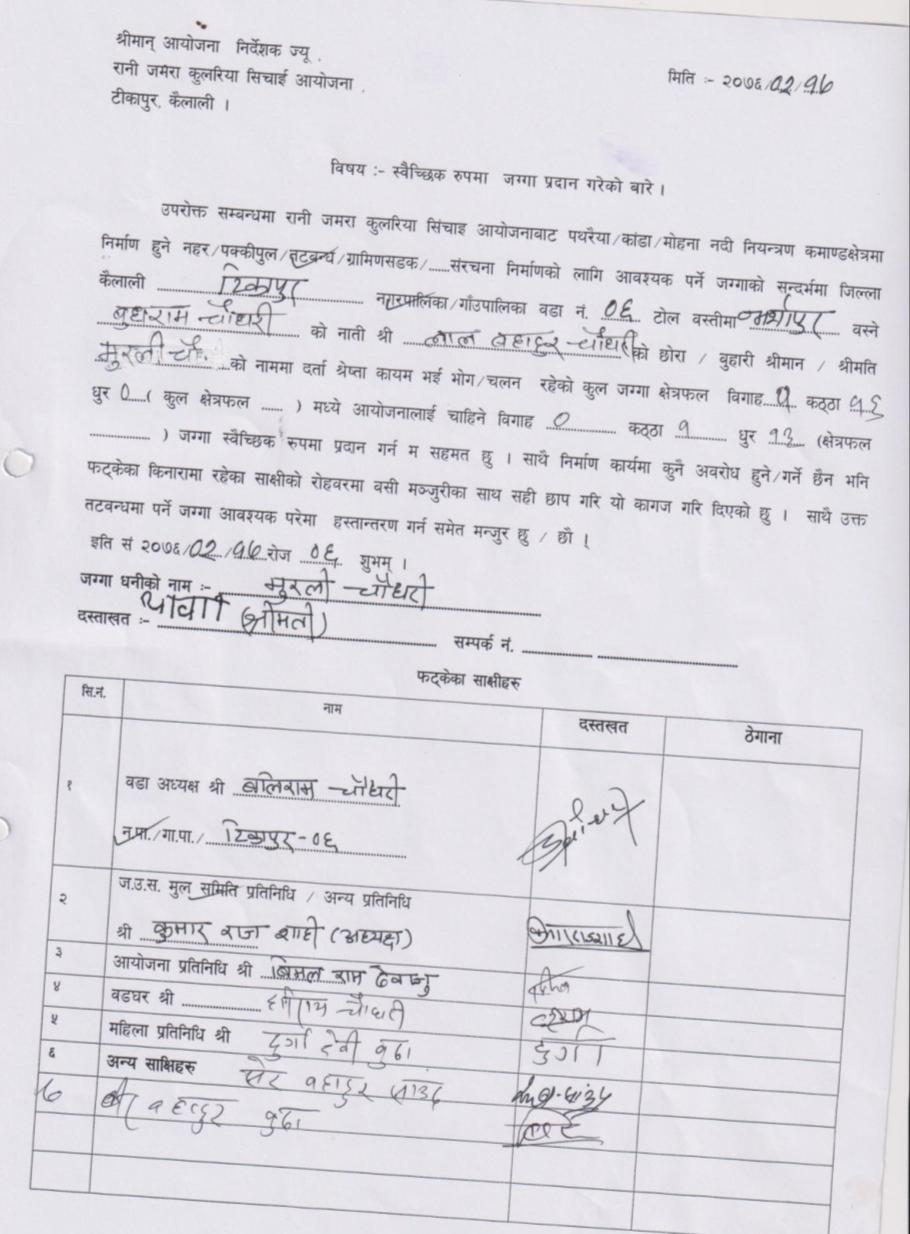 श्रीमान् आयोजना निर्देशक ज्यू ,
रानी जमरा कुलरिया सिचाई आयोजना ,
टीकापुर, कैलाली ।
मिति :- २०७६/02/१७
विषय :- स्वैच्छिक रुपमा जग्गा प्रदान गरेको बारे ।
उपरोक्त सम्बन्धमा रानी जमरा कुलरिया सिंचाइ आयोजनाबाट पथरैया/कांडा/मोहना नदी नियन्त्रण कमाण्डक्षेत्रमा
निर्माण हुने नहर/पक्कीपुल/तटबन्ध/ग्रामिणसडक/......संरचना निर्माणको लागि आवश्यक पर्ने जग्गाको सन्दर्भमा जिल्ला
कैलाली टिकापुर नगरपालिका/गाँउपालिका वडा नं. ०६ टोल वस्तीमा वस्ने
बुधराम चौधरी को नाती श्री लाल बहादुर चौधरी को छोरा / वुहारी श्रीमान / श्रीमति
मुरली चौ. को नाममा दर्ता श्रेष्ता कायम भई भोग/चलन रहेको कुल जग्गा क्षेत्रफल विगाह कठ्ठा १६
धुर 0 ( कुल क्षेत्रफल ...... ) मध्ये आयोजनालाई चाहिने विगाह 0 कठ्ठा १ धुर १३ (क्षेत्रफल
................ ) जग्गा स्वैच्छिक रुपमा प्रदान गर्न म सहमत छु । साथै निर्माण कार्यमा कुनै अवरोध हुने/गर्ने छैन भनि
फट्केका किनारामा रहेका साक्षीको रोहवरमा बसी मञ्जुरीका साथ सही छाप गरि यो कागज गरि दिएको छु । साथै उक्त
तटवन्धमा पर्ने जग्गा आवश्यक परेमा हस्तान्तरण गर्न समेत मन्जुर छु / छौ ।
इति सं २०७६/02/१७ रोज ०६ शुभम् ।
जग्गा धनीको नाम :- मुरली चौधरी
दस्ताखत :- (श्रीमती) सम्पर्क नं.
फट्केका साक्षीहरु
सि.नं. नाम दस्तखत ठेगाना
१ वडा अध्यक्ष श्री बलिराम चौधरी
न.पा./गा.पा./ टिकापुर-०६
२ ज.उ.स. मुल समिति प्रतिनिधि / अन्य प्रतिनिधि
श्री कुमार राज शाही (अध्यक्ष)
३ आयोजना प्रतिनिधि श्री बिमल राम
४ वडघर श्री चौधरी
५ महिला प्रतिनिधि श्री दुर्गा देवी वुढा दुर्गा
६ अन्य साक्षिहरु सेर बहादुर साउद
७ बहादुर वुढा